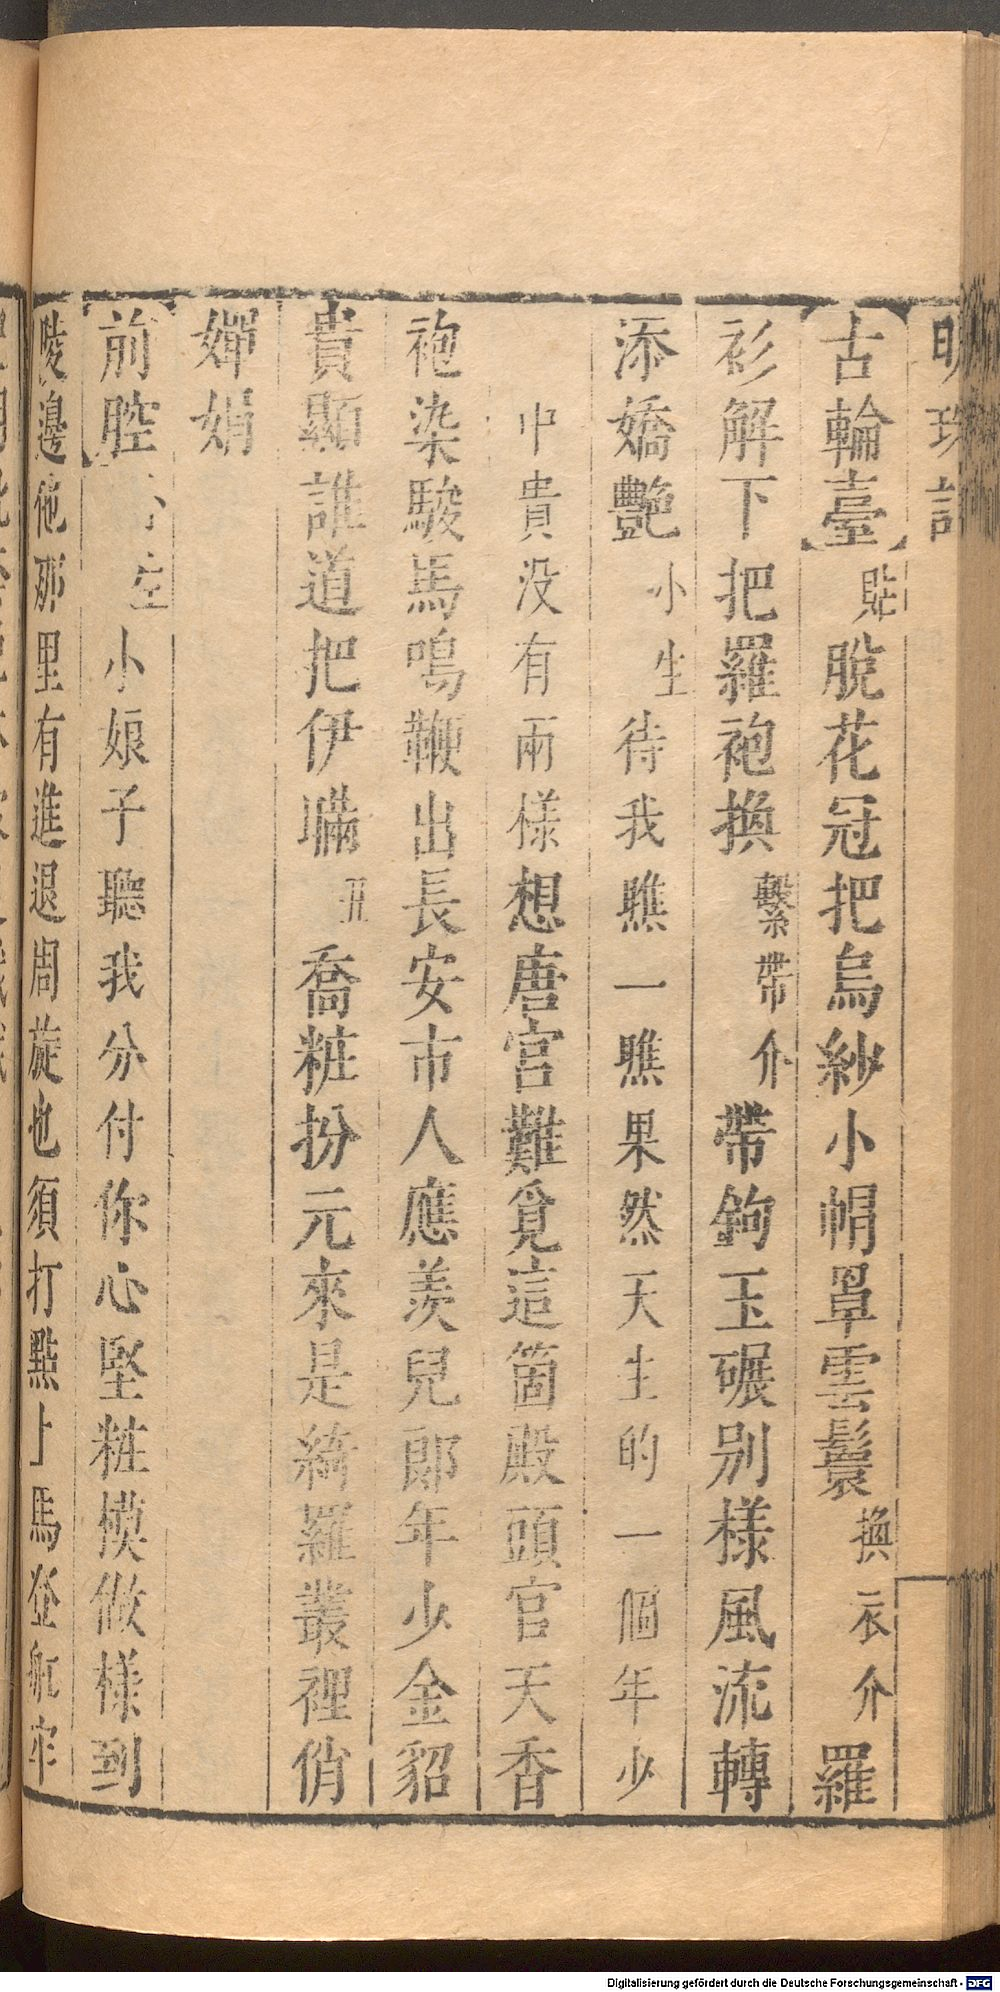 明珠記
古輪臺貼脫花冠把烏紗小帽罩雲鬟換衣介羅
衫解下把羅袍換繫帶介帶鉤玉碾别樣風流轉
添嬌艷小生待我瞧一瞧果然天生的一個年少
中貴没有兩樣想唐宮難覓這箇殿頭官天香
袍染駿馬鳴鞭出長安市人應羨兒郎年少金貂
貴顯誰道把伊瞞丑喬粧扮元來是綺羅叢裡俏
嬋娟
前腔小生小娘子聽我分付你心堅粧模做樣到
陵邊他那里有進退周旋也須打點上馬登
Digitalisierung gefördert durch die Deutsche Forschungsgemeinschaft - DFG